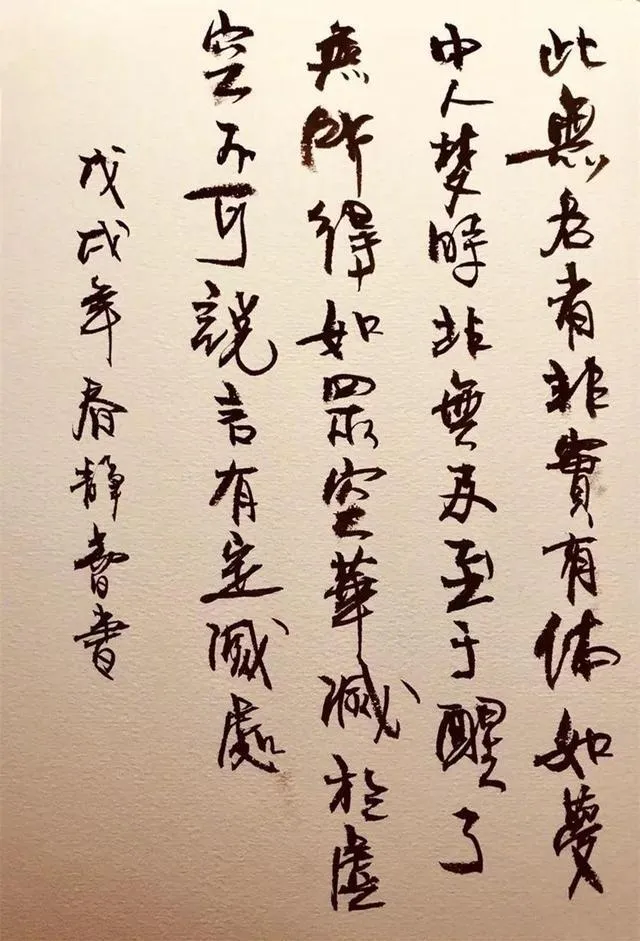 此無名者有非實有体如夢
中人梦時非無及至于醒了
無所得如眾空華滅於虛
空不可說言有定滅處
戊戌年春靜書